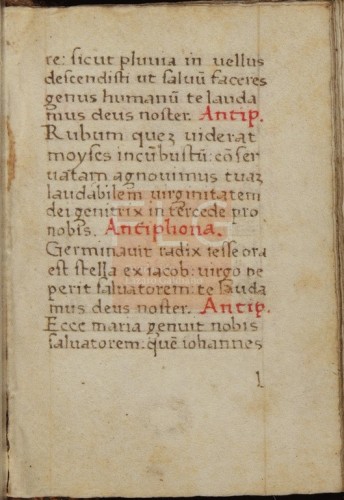 re: sicut pluuia in uellus
descendisti ut saluū faceres
genus humanū te lauda
mus deus noster. Antip.
Rubum quez uiderat
moyses incūbustū: cōser
uatam agnouimus tuaz
laudabilem uirginitatem
dei genitrix intercede pro
nobis. Antiphona.
Germinauit radix iesse ora
est stella ex iacob: uirgo pe
perit saluatorem: te lauda
mus deus noster. Antip.
Ecce maria genuit nobis
saluatorem: quē iohannes